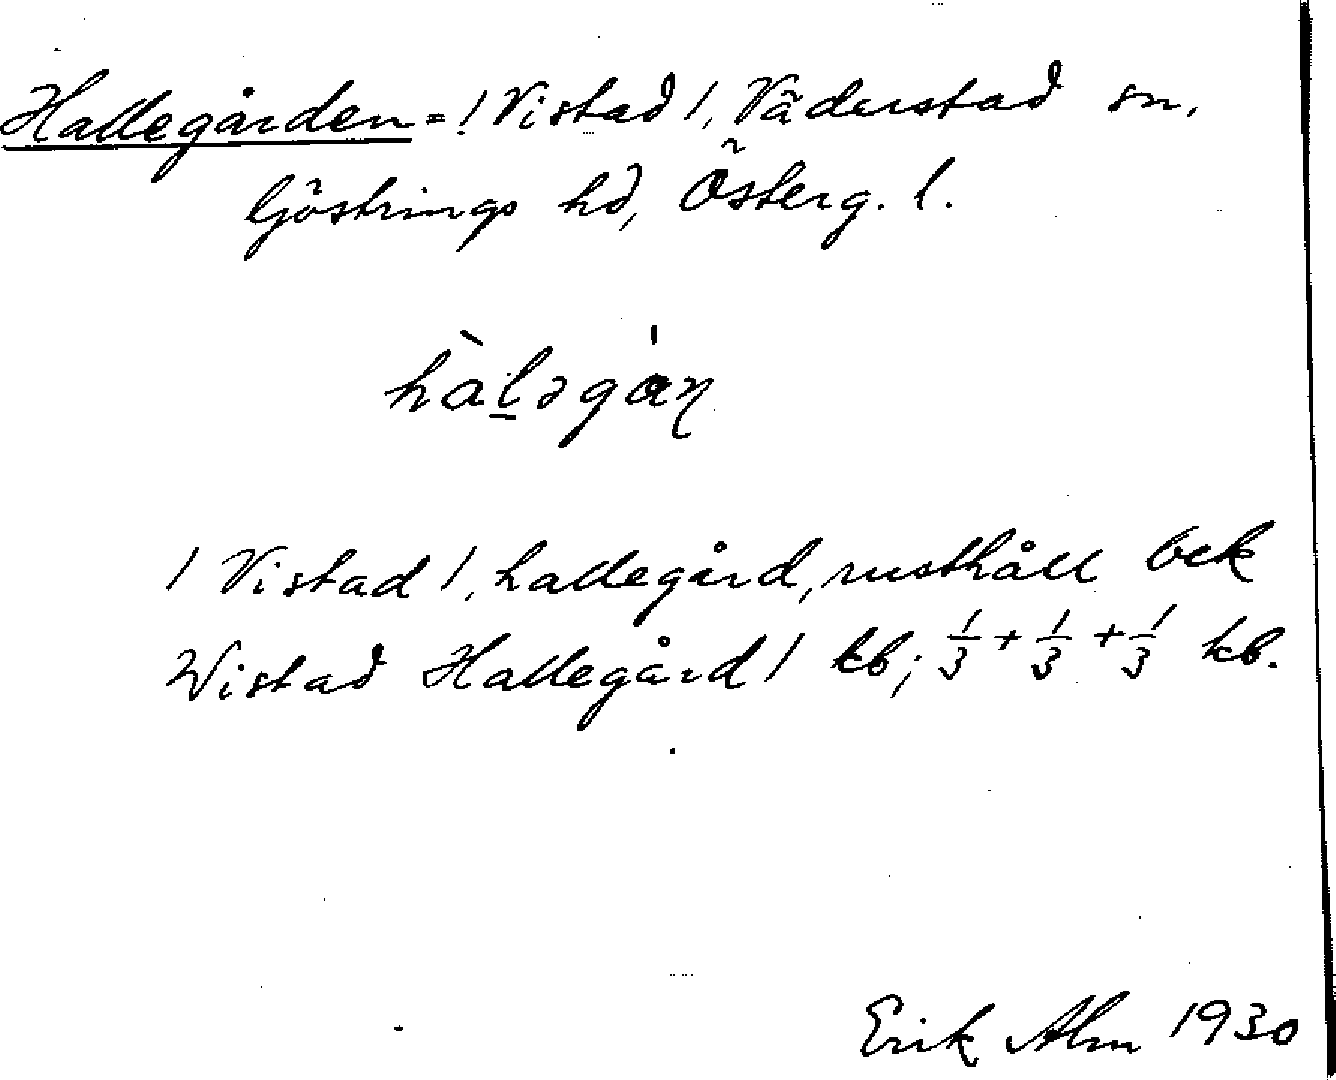 Hallegården = /Vistad/, Väderstad sn,
Göstrings hd, Österg. l.
hàl̠əgáɳ
/Vistad/, hallegård, rusthåll bek
Wistad Hallegård/ kb; 1/3 + 1/3 + 1/3 kb.
Erik Alm 1930